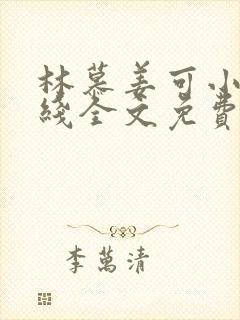 林慕姜可小
綫全文免費
李萬清